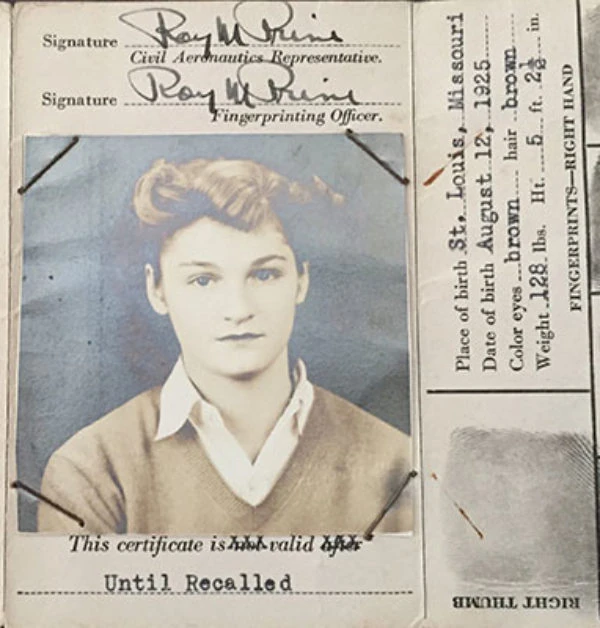 Signature Ray M Prime
Civil Aeronautics Representative.
Signature Ray M Prime
Fingerprinting Officer.
This certificate is not valid after
Until Recalled
Place of birth St. Louis, Missouri
Date of birth August 12, 1925
Color eyes brown hair brown
Weight 128 lbs. Ht. 5 ft. 2½ in.
FINGERPRINTS—RIGHT HAND
RIGHT THUMB